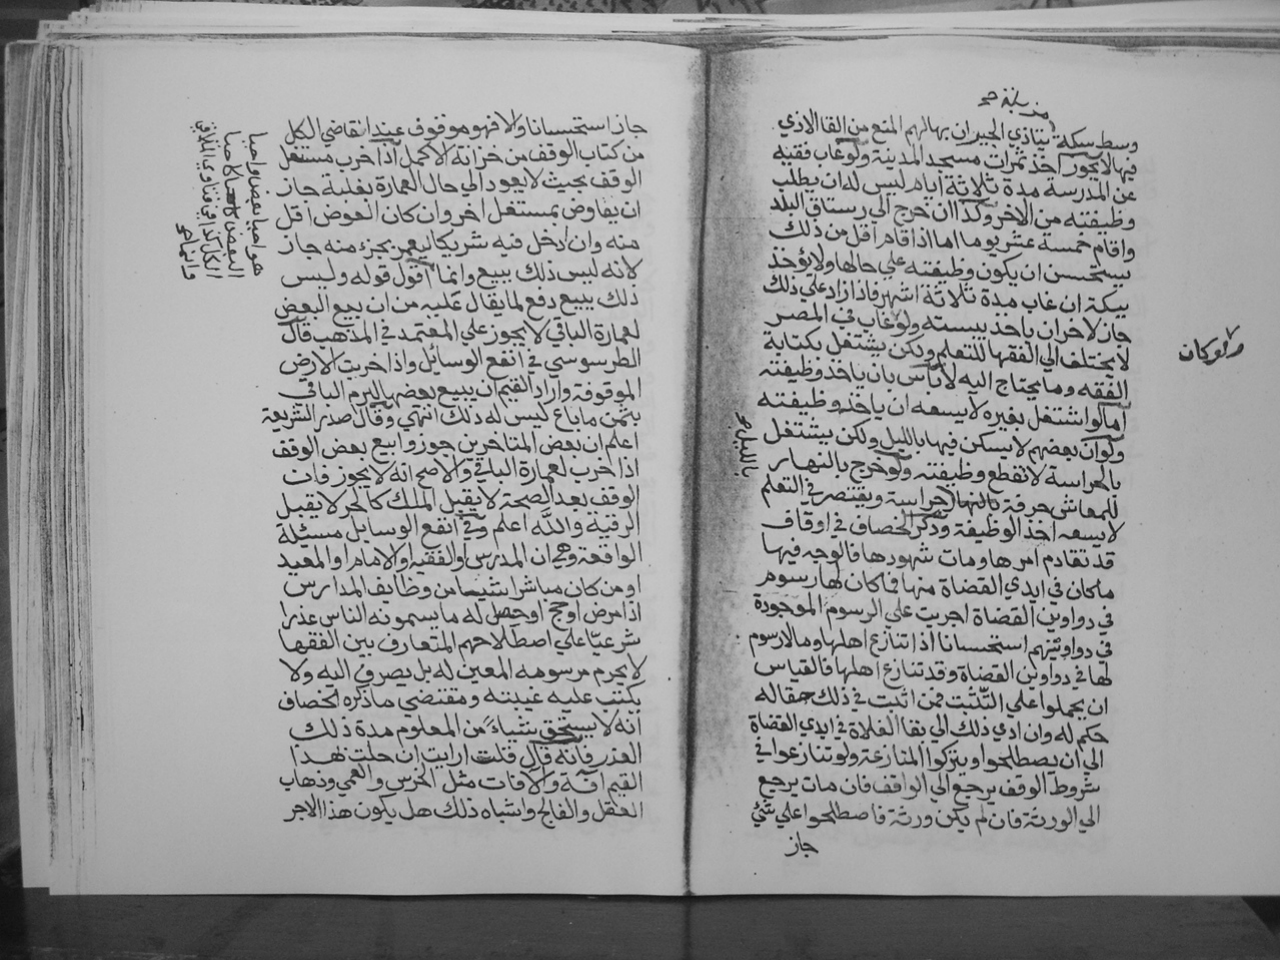 مزبلة صح
وسط سكة يتاذي الجيران بها لهم المنع من القا الاذي
فيها لايجوز اخذ ثمرات مسجد المدينة ولو غاب فقيه
عن المدرسة مدة ثلاثة ايام ليس له ان يطلب
وظيفته من الاخر وكذا ان خرج الي رستاق البلد
واقام خمسة عشر يوما اما اذا قام اقل من ذلك
يستحسن ان يكون وظيفته علي حالها ولا يؤخذ
بيكة ان غاب مدة ثلاثة اشهر فاذا زاد علي ذلك
جاز لاخر ان ياخذ بيسته ولو غاب في المصر
لا يختلف الي الفقها للتعلم ولكن يشتغل بكتابة
الفقه وما يحتاج اليه لا باس بان ياخذ وظيفته
اما لو اشتغل بغيره لا يسعه ان ياخذ وظيفته
ولو ان بعضهم لا يسكن فيها بالليل ولكن يشتغل
بالحراسة لا تقطع وظيفته ولو خرج بالنهار
للمعاش حرفة بالنهار لحراسة ويقتصر في التعلم
لا يسعه اخذ الوظيفة وذكر الخصاف في اوقاف
قد تقادم امرها ومات شهودها فالوجه فيها
ما كان في ايدي القضاة منها فما كان لها رسوم
في دواوين القضاة اجريت علي الرسوم الموجودة
في دواوينهم استحسانا اذا تنازع اهلها وما لا رسوم
لها في دواوين القضاة وقد تنازع اهلها فالقياس
ان يحملوا علي التثبت فمن اثبت في ذلك حقا له
حكم له وان ادي ذلك الي بقا الغلاة في ايدي القضاة
الي ان يصطلحوا ويتركوا المنازعة ولو تنازعوا في
شروط الوقف يرجع الي الواقف فان مات يرجع
الي الورثة فان لم يكن ورثة فاصطلحوا علي شئ
جاز
ولو كان
بالليل صح
جاز استحسانا والا فهو موقوف عند القاضي الكل
من كتاب الوقف من خزانة الاكمل اذا خرب مستغل
الوقف بحيث لا يعود الي حال العمارة بغلبة جاز
ان يقاوض بمستغل اخر وان كان العوض اقل
منه وان ادخل فيه شريكا ليعمر بجزء منه جاز
لانه ليس ذلك ببيع وانما اقول قوله وليس
ذلك ببيع دفع لما يقال عليه من ان بيع البعض
لعمارة الباقي لا يجوز علي المعتمد في المذهب قال
الطرسوسي في انفع الوسائل واذا خربت الارض
الموقوفة واراد القيم ان يبيع بعضها ليرم الباقي
بثمن ما باع ليس له ذلك انتهي وقال صدر الشريعة
اعلم ان بعض المتاخرين جوزوا بيع بعض الوقف
اذا خرب لعمارة الباقي والاصح انه لا يجوز فان
الوقف بعد الصحة لا يقبل الملك كالحر لا يقبل
الرقية والله اعلم وفي انفع الوسايل مسئلة
الواقعة وهي ان المدرس او الفقيه او الامام او المعيد
او من كان مباشرا شيئا من وظايف المدارس
اذا مرض او حج او حصل له ما يسمونه الناس عذرا
شرعيا علي اصطلاحهم المتعارف بين الفقها
لا يحرم مرسومه المعين له بل يصرف اليه ولا
يكتب عليه غيبته ومقتضي ما ذكره الخصاف
انه لا يستحق شياء من المعلوم مدة ذلك
العذر فانه قال قلت ارايت ان حلت بهذا
القيم افة والافات مثل الخرس والعمي وذهاب
العقل والفالج واشباه ذلك هل يكون هذا الاجر